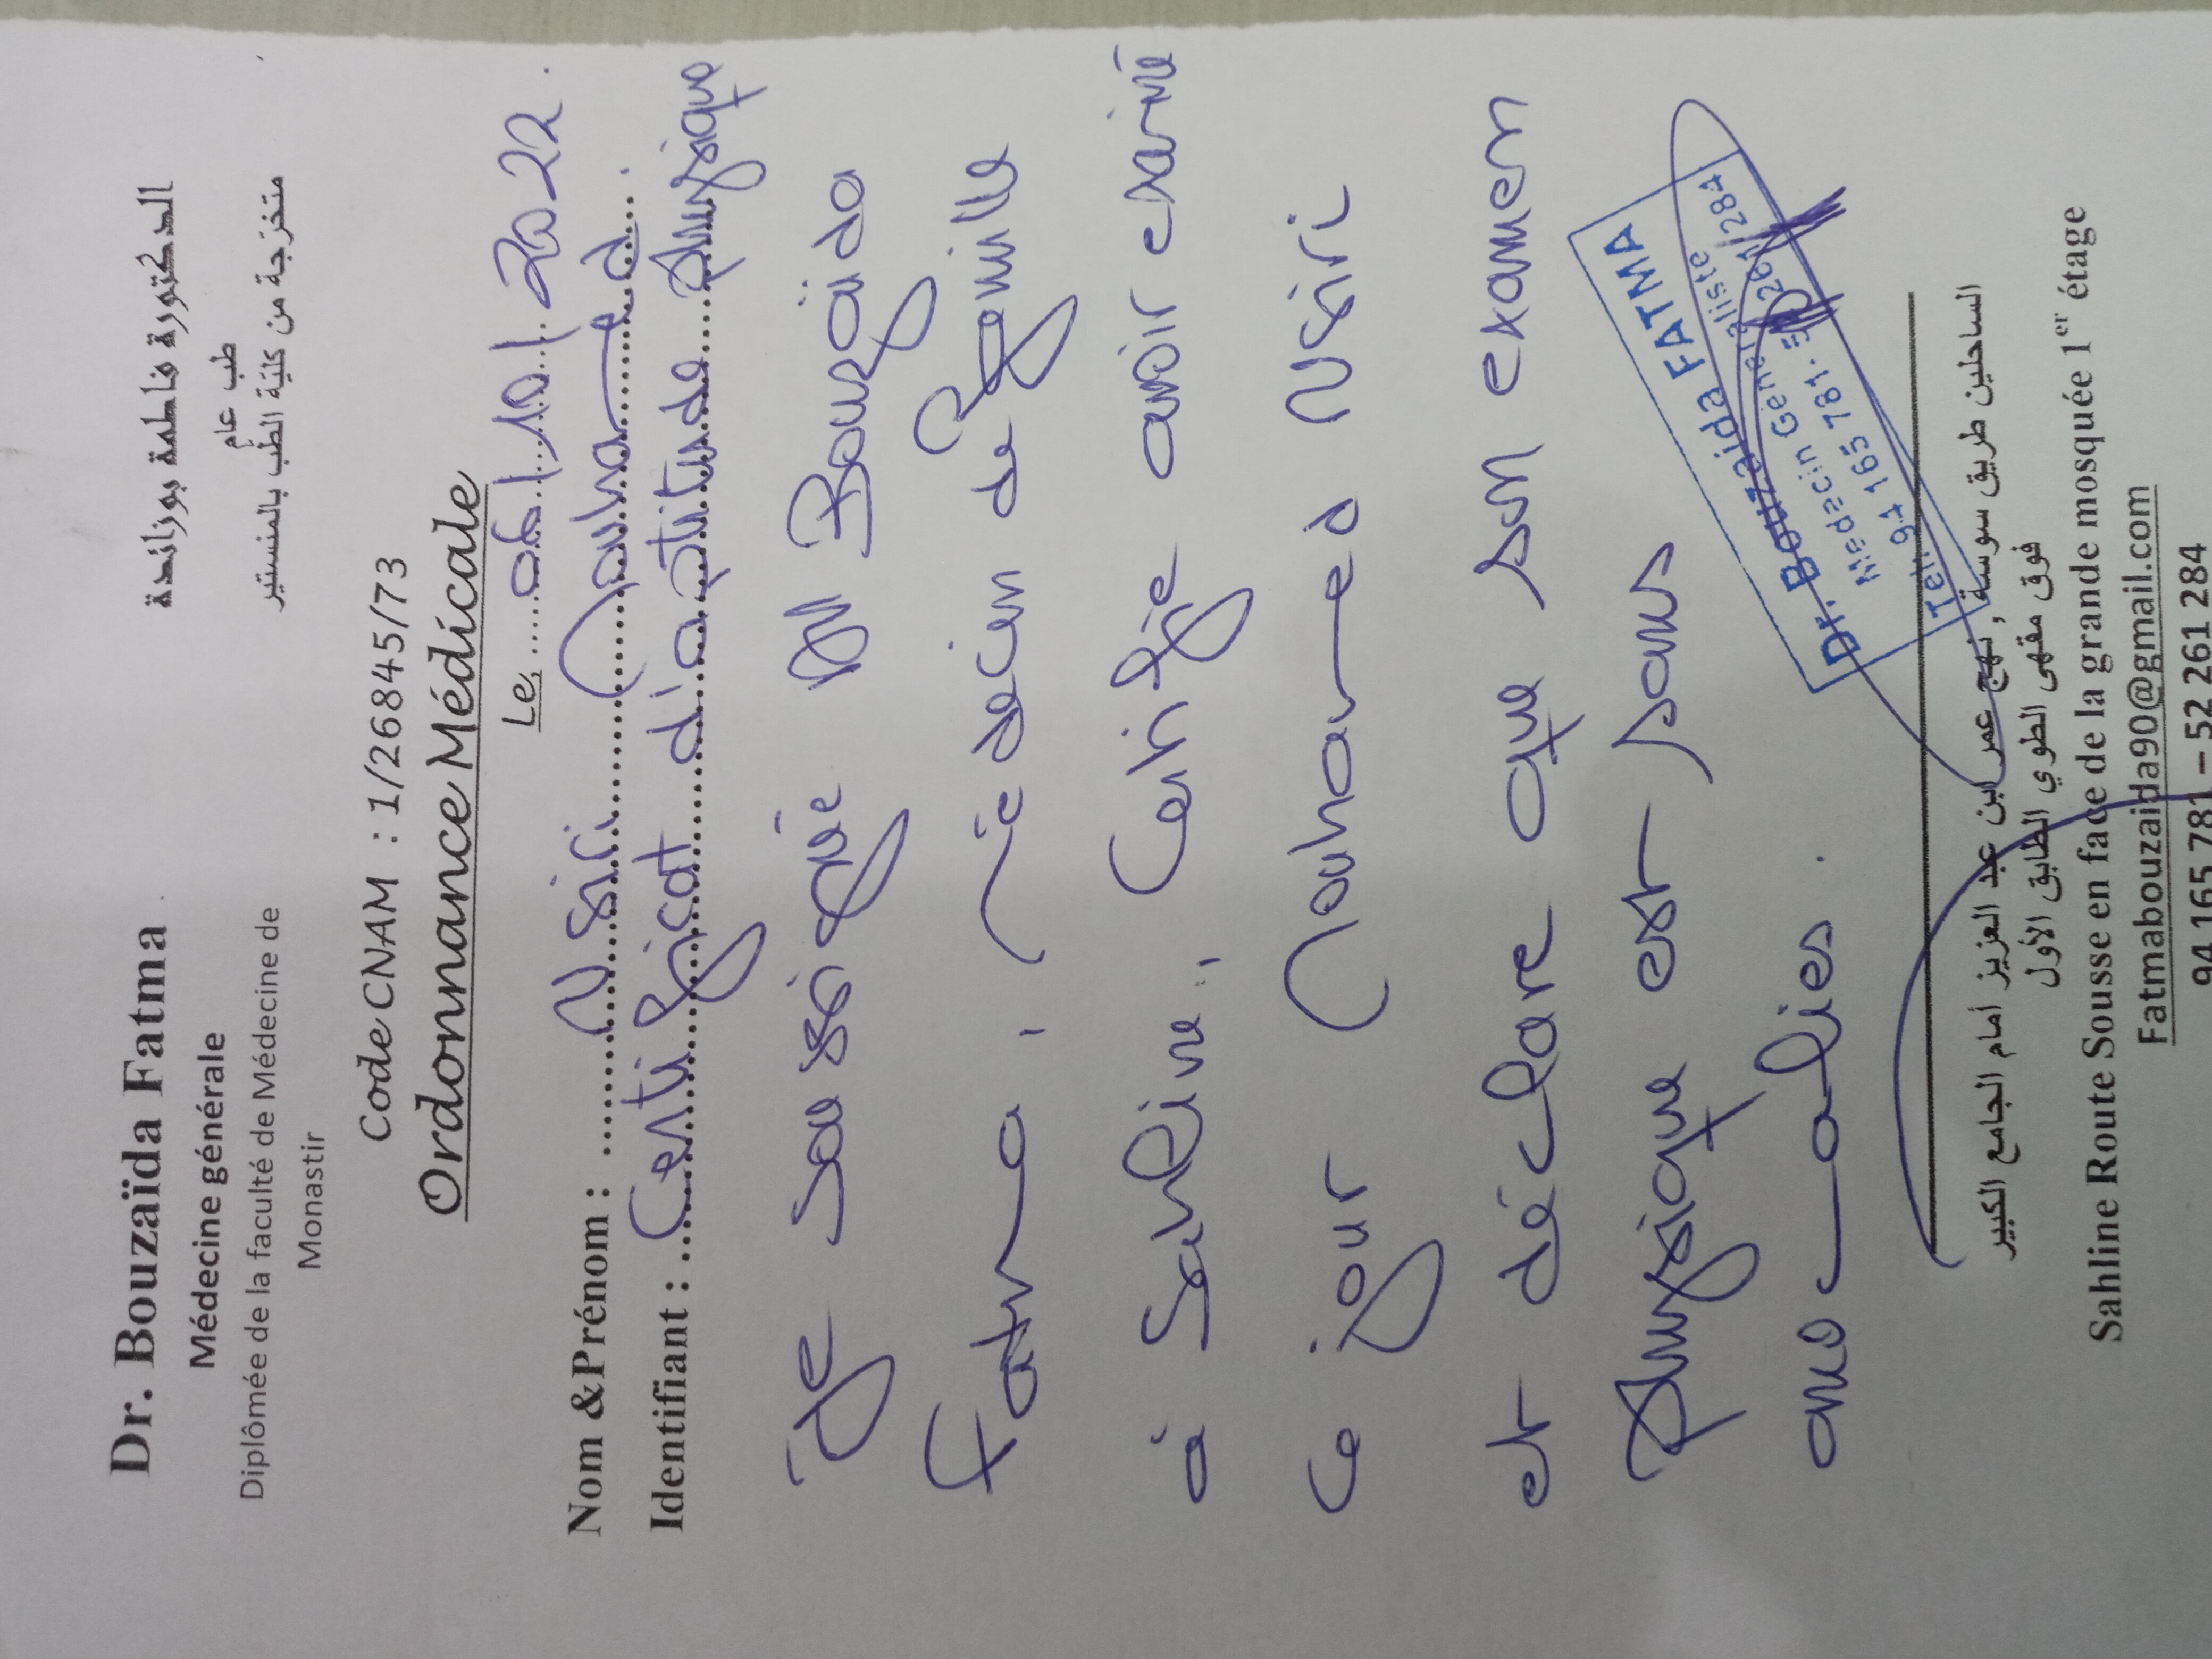 Dr. Bouzaïda Fatma
Médecine générale
Diplômée de la faculté de Médecine de
Monastir
الدكتورة فاطمة بوزائدة
طب عام
متخرّجة من كليّة الطّب بالمنستير
Code CNAM : 1/26845/73
Ordonnance Médicale
Le, 06/10/2022.
Nom &Prénom : Nsiri Mouhamed
Identifiant : Certificat d'aptitude physique
Je soussignée Dr Bouzaïda
Fatma, médecin de famille
à Sahline, Certifie avoir examiné
ce jour Mouhamed Nsiri
et déclare que son examen
physique est sans
anomalies.
Dr. Bouzaida FATMA
Médecin Généraliste
94 165 781. 52 261 284
الساحلين طريق سوسة , نهج عمر ابن عبد العزيز أمام الجامع الكبير
فوق مقهى الطوي الطابق الأول
Sahline Route Sousse en face de la grande mosquée 1er étage
Fatmabouzaida90@gmail.com
94 165 781 – 52 261 284